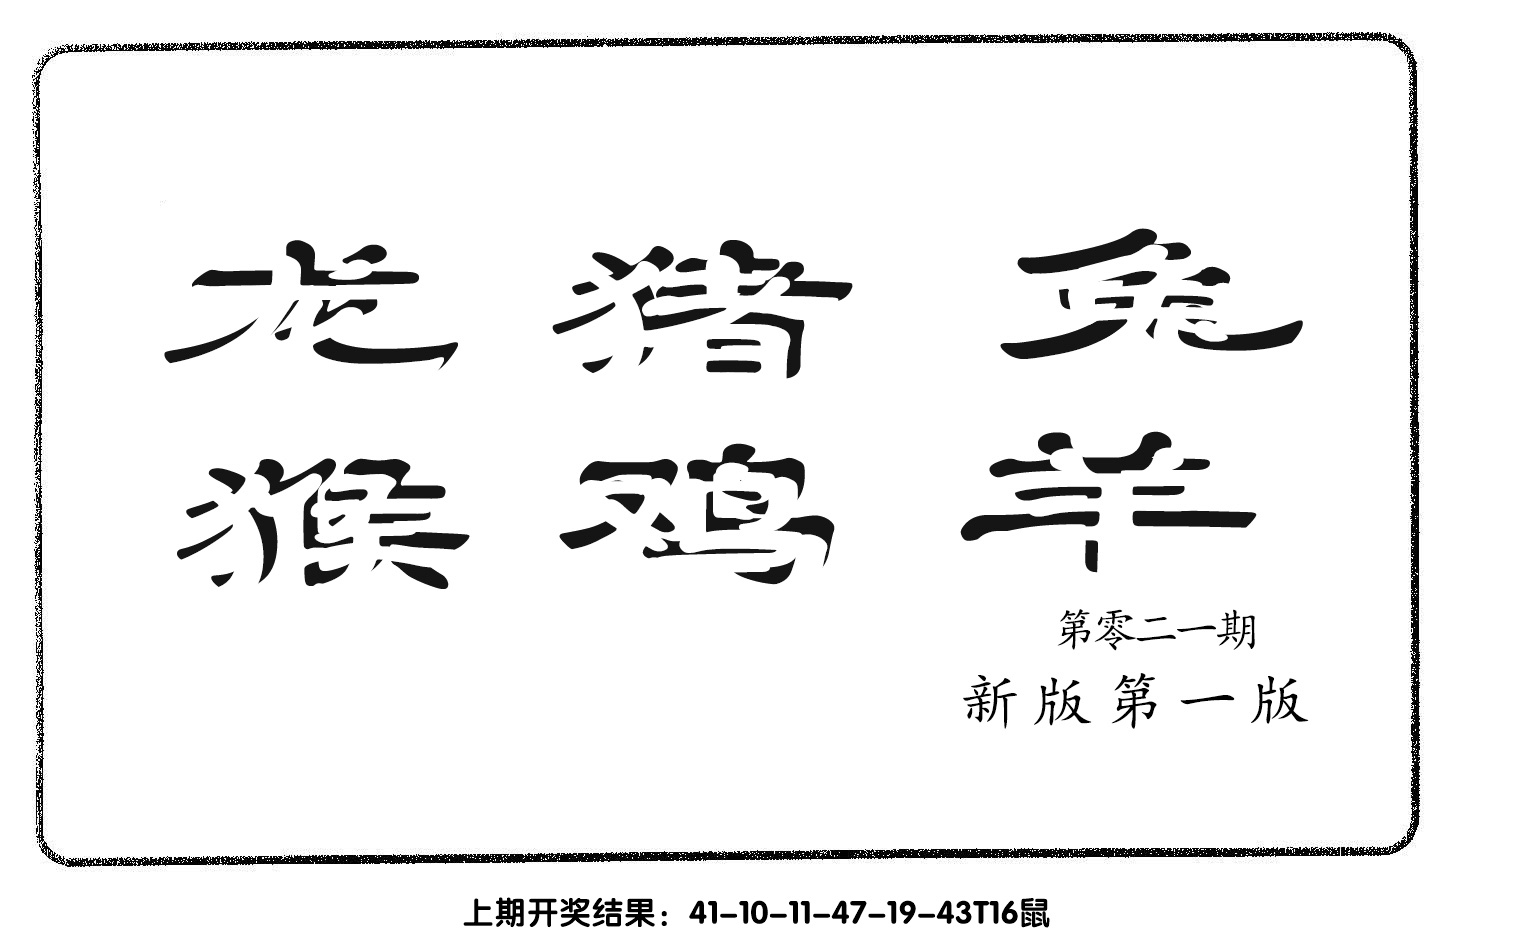 龙 猪 兔
猴 鸡 羊
第零二一期
新版第一版
上期开奖结果：41-10-11-47-19-43T16鼠